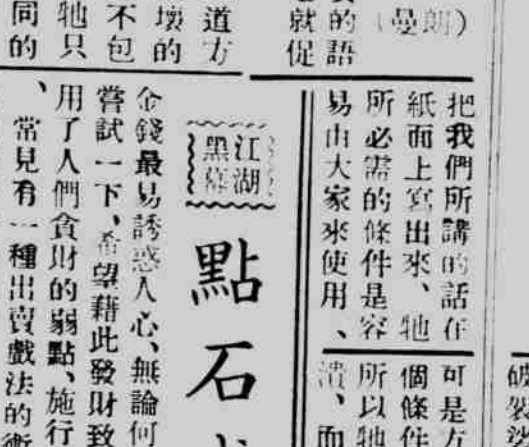 的語
就促
(曼朗)
道方
壞的
不包
牠只
同的
把我們所講的話在
紙面上寫出來、牠
所必需的條件是容
易由大家來使用、
可是
個條件
所以牠
潰、而
破裂
江湖
黑幕
點石
金錢最易誘惑人心、無論何
嘗試一下、希望藉此發財致
用了人們貪財的弱點、施行
、常見有一種出賣戲法的